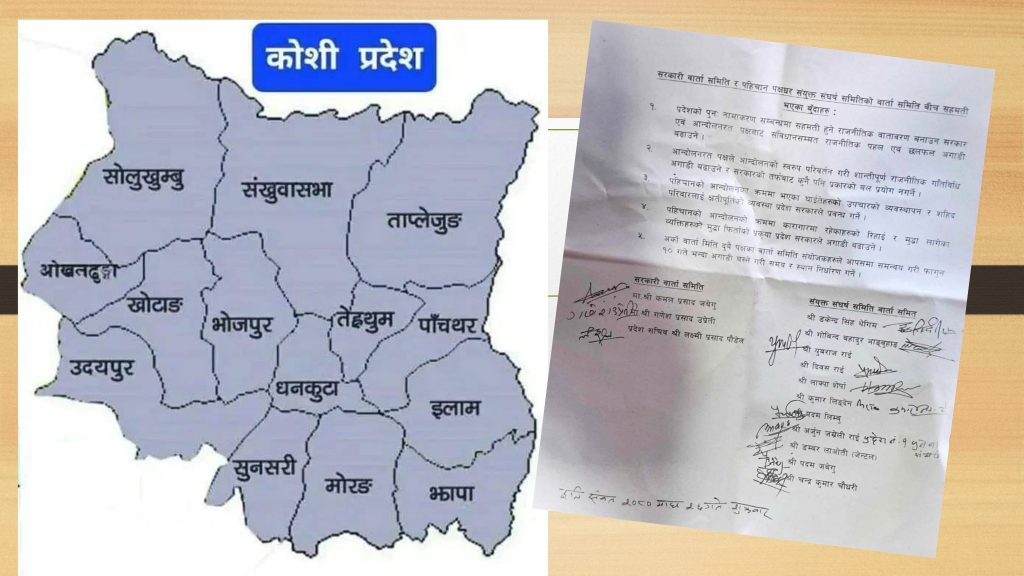 कोशी प्रदेश
सोलुखुम्बु
संखुवासभा
ताप्लेजुङ
ओखलढुङ्गा
खोटाङ
भोजपुर
तेह्रथुम
पाँचथर
उदयपुर
धनकुटा
इलाम
सुनसरी
मोरङ
झापा
सरकारी वार्ता समिति र पहिचान पक्षधर संयुक्त संघर्ष समितिको वार्ता समिति बीच सहमती
भएका बुँदाहरु :
१. प्रदेशको पुनः नामाकरण सम्बन्धमा सहमती हुने राजनीतिक वातावरण बनाउन सरकार
एवं आन्दोलनरत पक्षबाट संविधानसम्मत राजनीतिक पहल एवं छलफल अगाडी
बढाउने ।
२. आन्दोलनरत पक्षले आन्दोलनको स्वरुप परिवर्तन गरी शान्तीपूर्ण राजनीतिक गतिविधि
अगाडी बढाउने र सरकारको तर्फबाट कुनै पनि प्रकारको बल प्रयोग नगर्ने ।
३. पहिचानको आन्दोलनका क्रममा भएका घाईतेहरुको उपचारको व्यवस्थापन र शहिद
परिवारलाई क्षतीपूर्तिको व्यवस्था प्रदेश सरकारले प्रबन्ध गर्ने ।
४. पहिचानको आन्दोलनको क्रममा कारागारमा रहेकाहरुको रिहाई र मुद्दा लागेका
व्यक्तिहरुको मुद्दा फिर्ताको प्रकृया प्रदेश सरकारले अगाडी बढाउने ।
५. अर्को वार्ता मिति दुवै पक्षका वार्ता समिति संयोजकहरुले आपसमा समन्वय गरी फागुन
१० गते भन्दा अगाडी बस्ने गरी समय र स्थान निर्धारण गर्ने ।
सरकारी वार्ता समिति
मा.श्री कमल प्रसाद जबेगु
श्री गणेश प्रसाद उप्रेती
प्रदेश सचिव श्री लक्ष्मी प्रसाद पौडेल
संयुक्त संघर्ष समिति वार्ता समित
श्री डकेन्द्र सिंह थेगिम
श्री गोबिन्द बहादुर
श्री युवराज राई
श्री दिवस राई
श्री लाक्पा शेर्पा
श्री कुमार लिङदेन
श्री पदम लिम्बु
श्री अर्जुन जम्नेली राई
श्री डम्बर लाओती (जेन्टल)
श्री पदम जबेगु
श्री चन्द्र कुमार चौधरी
इति संवत २०८० माघ २६ गते शुक्रवार